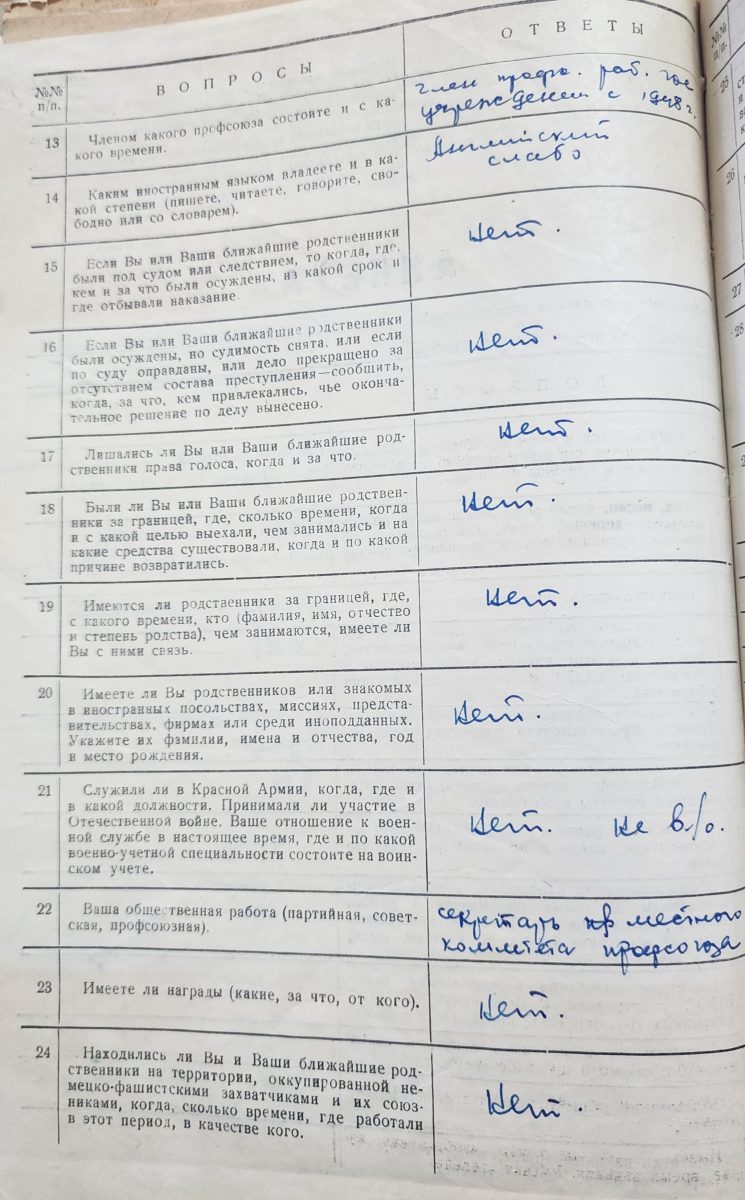 №№ п/п.
ВОПРОСЫ
ОТВЕТЫ
13
Членом какого профсоюза состоите и с ка-
кого времени.
член профс. раб. гос
учреждений с 1948 г.
14
Каким иностранным языком владеете и в ка-
кой степени (пишете, читаете, говорите, сво-
бодно или со словарем).
Английский
слабо
15
Если Вы или Ваши ближайшие родственники
были под судом или следствием, то когда, где,
кем и за что были осуждены, на какой срок и
где отбывали наказание.
нет.
16
Если Вы или Ваши ближайшие родственники
были осуждены, но судимость снята, или если
по суду оправданы, или дело прекращено за
отсутствием состава преступления—сообщить,
когда, за что, кем привлекались, чье оконча-
тельное решение по делу вынесено.
нет.
17
Лишались ли Вы или Ваши ближайшие род-
ственники права голоса, когда и за что.
нет.
18
Были ли Вы или Ваши ближайшие родствен-
ники за границей, где, сколько времени, когда
и с какой целью выехали, чем занимались и на
какие средства существовали, когда и по какой
причине возвратились.
нет.
19
Имеются ли родственники за границей, где,
с какого времени, кто (фамилия, имя, отчество
и степень родства), чем занимаются, имеете ли
Вы с ними связь.
нет.
20
Имеете ли Вы родственников или знакомых
в иностранных посольствах, миссиях, предста-
вительствах, фирмах или среди иноподданных.
Укажите их фамилии, имена и отчества, год
и место рождения.
нет.
21
Служили ли в Красной Армии, когда, где и
в какой должности. Принимали ли участие в
Отечественной войне. Ваше отношение к воен-
ной службе в настоящее время, где и по какой
военно-учетной специальности состоите на воин-
ском учете.
нет. не в/о.
22
Ваша общественная работа (партийная, совет-
ская, профсоюзная).
секретарь местного
комитета профсоюза
23
Имеете ли награды (какие, за что, от кого).
нет.
24
Находились ли Вы и Ваши ближайшие род-
ственники на территории, оккупированной не-
мецко-фашистскими захватчиками и их союз-
никами, когда, сколько времени, где работали
в этот период, в качестве кого.
нет.
№№ п/п.
25
26
27
28